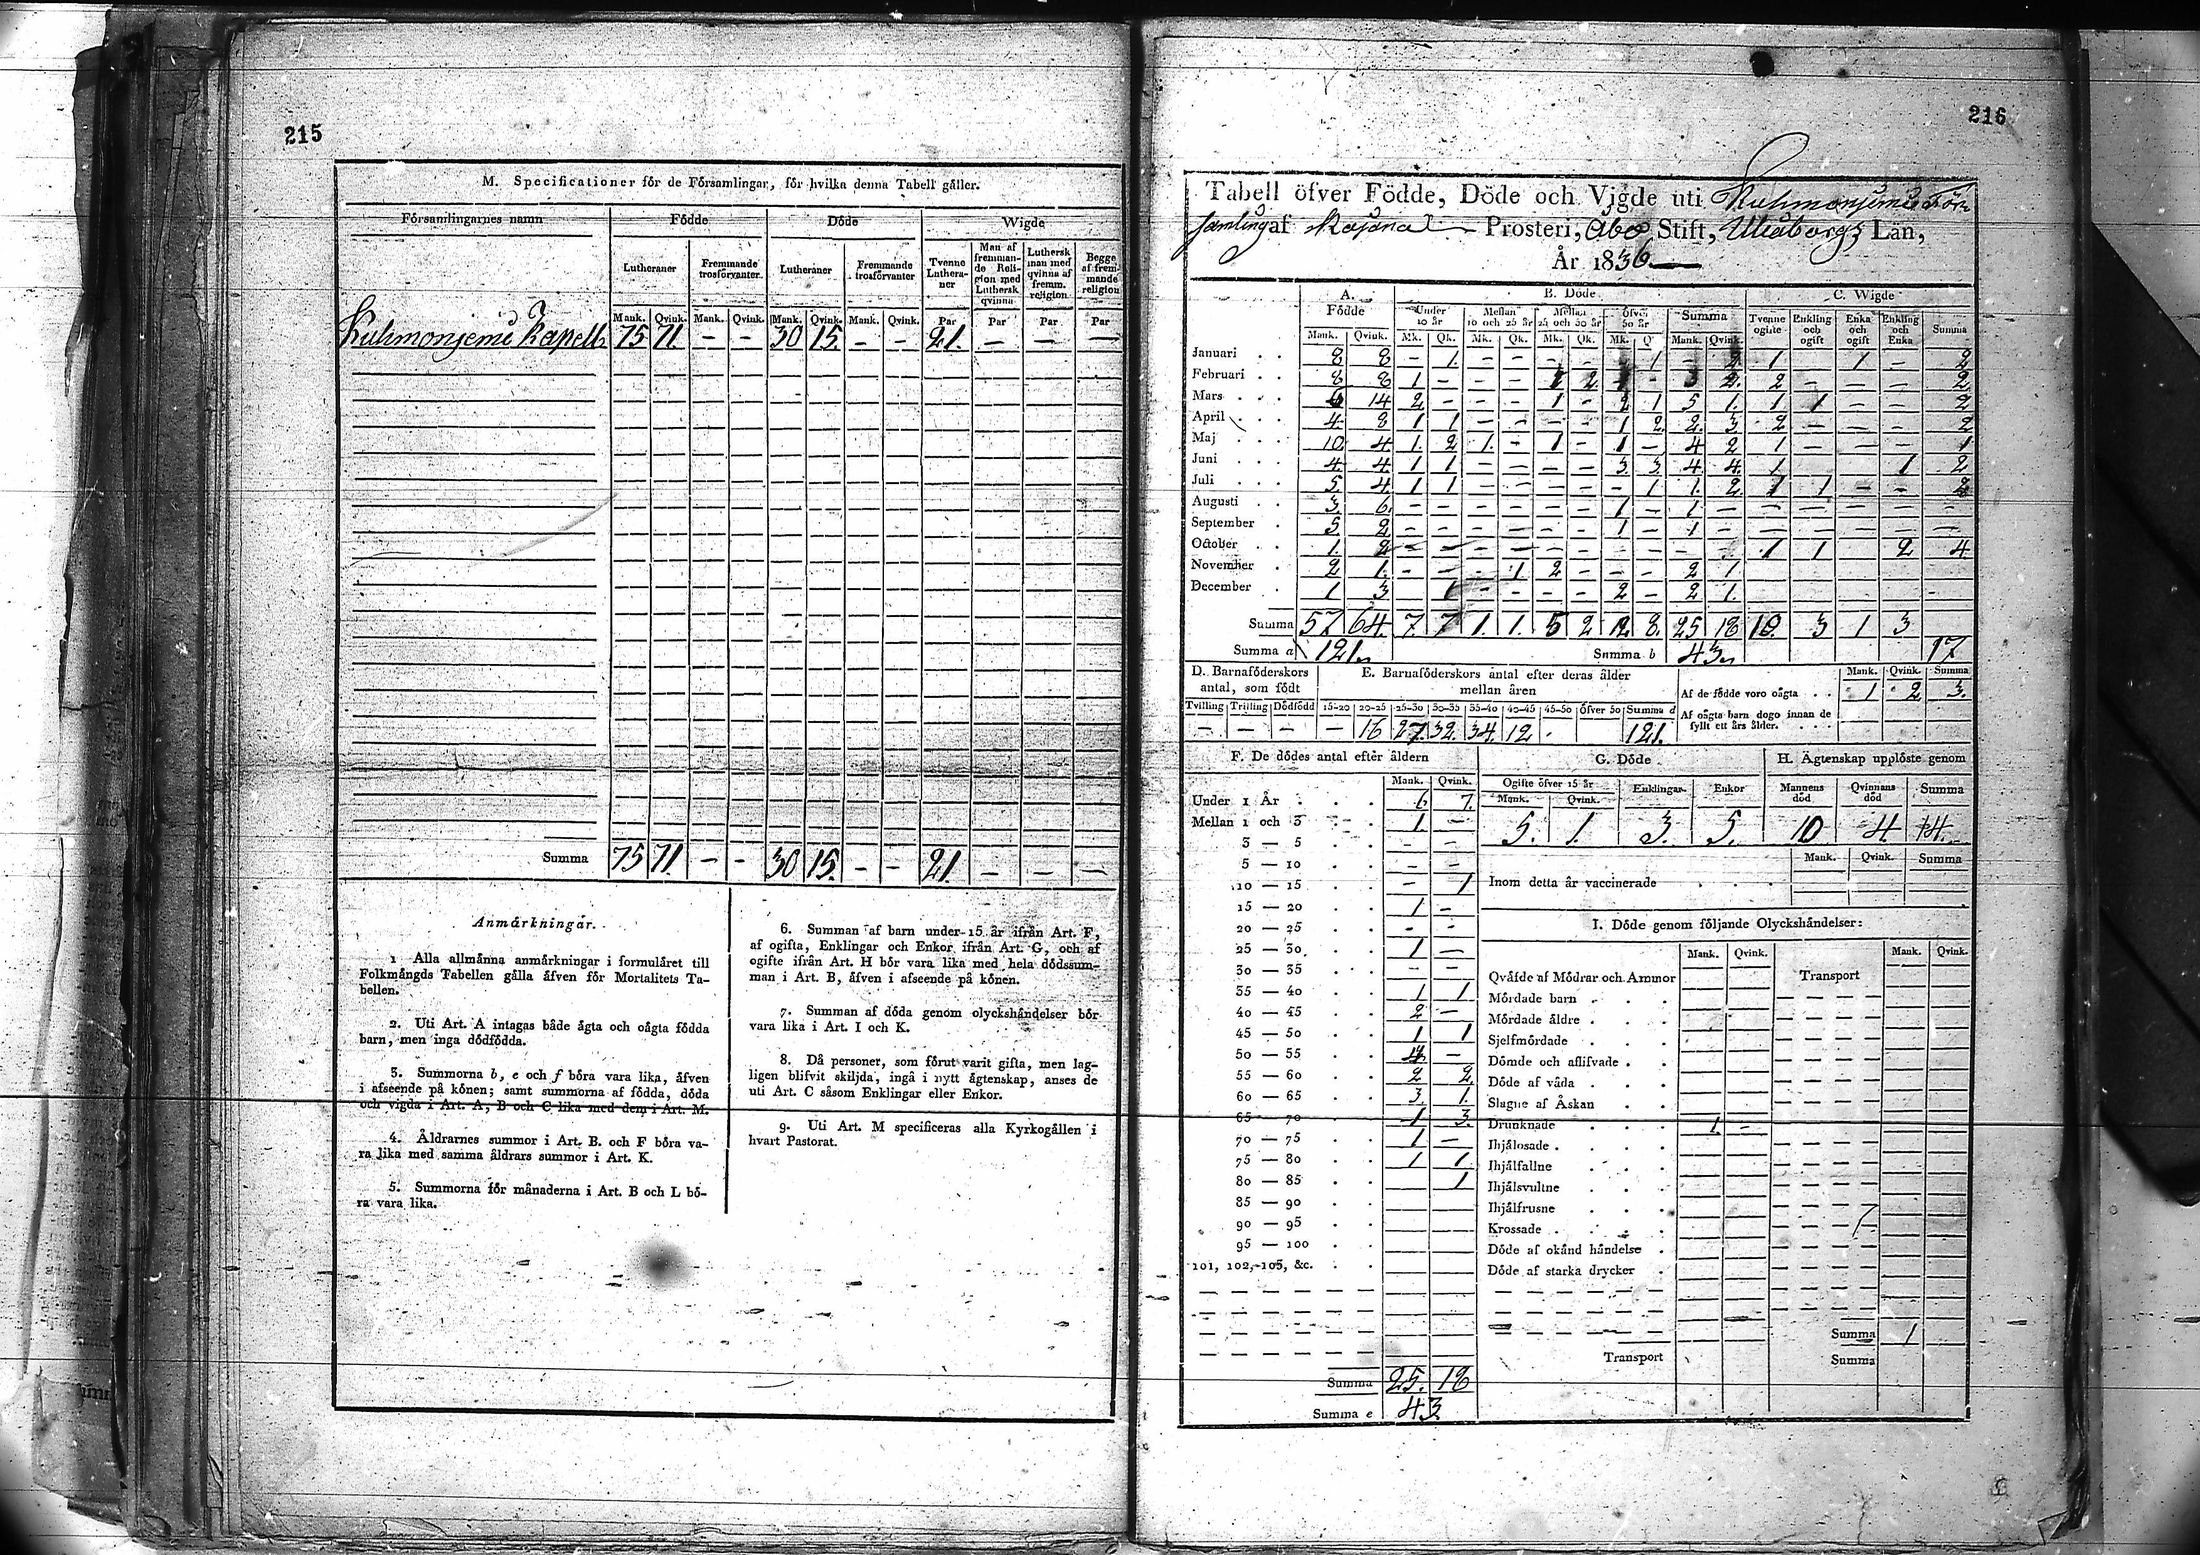 215
M. Specificationer för de Församlingar, för hvilka denna Tabell gäller.
Församlingarnes namn Födde Döde Wigde
Lutheraner Fremmande trosförvanter. Lutheraner Fremmande trosförvanter Tvenne Lutheraner Man af fremmande Religion med Luthersk qvinna Luthersk man med qvinna af fremm. religion Begge af fremmande religion
Mank. Qvink. Mank. Qvink. Mank. Qvink. Mank. Qvink. Par Par Par Par
Kuhmonjemi Kapell 75 71. — — 30 15. — — 21. — — —
Summa 75 71 — - 30 15. — - 21. — — —
Anmärkningar.
1 Alla allmänna anmärkningar i formuläret till
Folkmängds Tabellen gälla äfven för Mortalitets Ta-
bellen.
2. Uti Art. A intagas både ägta och oägta födda
barn, men inga dödfödda.
3. Summorna b, e och f böra vara lika, äfven
i afseende på könen; samt summorna af födda, döda
och vigda i Art. A, B och C lika med dem i Art. M.
4. Åldrarnes summor i Art. B. och F böra va-
ra lika med samma åldrars summor i Art. K.
5. Summorna för månaderna i Art. B och L bö-
ra vara lika.
6. Summan af barn under 15 år ifrån Art. F,
af ogifta, Enklingar och Enkor ifrån Art. G, och af
ogifte ifrån Art. H bör vara lika med hela dödssum-
man i Art. B, äfven i afseende på könen.
7. Summan af döda genom olyckshändelser bör
vara lika i Art. I och K.
8. Då personer, som förut varit gifta, men lag-
ligen blifvit skiljda, ingå i nytt ägtenskap, anses de
uti Art. C såsom Enklingar eller Enkor.
9. Uti Art. M specificeras alla Kyrkogällen i
hvart Pastorat.
216
Tabell öfver Födde, Döde och Vigde uti Kuhmonjemi För-
samling af Kajana Prosteri, Åbo Stift, Uleåborgs Län,
År 1836.
A. Födde B. Döde C. Wigde
Under 10 år Mellan 10 och 25 år Mellan 25 och 50 år Öfver 50 år Summa Tvenne ogifte Enkling och ogift Enka och ogift Enkling och Enka Summa
Mank. Qvink. Mk. Qk. Mk. Qk. Mk. Qk. Mk. Q Mank. Qvink.
Januari 8 8 - 1. - - - - - 1 - 2 1 1 - 2
Februari 8 8 1 - - - 1 2 - 3 2. 2 - - - 2
Mars 14 2 - - - 1 - 2 1 5 1. 1 1 - - 2
April 4 8 1 1 - - - - 1 2 2 3 2 - - - 2
Maj 10 4 1. 2 1. - 1 - 1 - 4 2 1 1
Juni 4 4 1 1 - - - - 3 3 4 4 1 1 2
Juli 5 4 1 1 - - - - - 1 1. 2 1 1 - - 2
Augusti 3 6. - - - - - - 1 - 1 - - - - - -
September 5 2 - - - - - - 1 - 1 - - - - - -
October 1. 2 - - - - - - - - - - 1 1 2 4
November 2 1. - - - 1 2 - - - 2 1
December 1 3 1 - - - - 2 - 2 1.
Summa 57 64. 7 7 1. 1. 5 2 12 8. 25 18 10. 3 1 3
Summa a 121. Summa b 43. 17
D. Barnaföderskors antal, som födt E. Barnaföderskors antal efter deras ålder mellan åren
Mank. Qvink. Summa
Af de födde voro oägta 1 2 3.
Tvilling Trilling Dödfödd 15-20 20-25 25-30 30-35 35-40 40-45 45-50 Öfver 50 Summa d
Af oägta barn dogo innan de fyllt ett års ålder.
- - - - 16 27. 32. 34. 12 . 121.
F. De dödes antal efter åldern
Mank. Qvink.
Under 1 År 6 7.
Mellan 1 och 3 1. -
3 — 5 - -
5 — 10 - -
10 — 15 - 1
15 — 20 1 -
20 — 25 - -
25 — 30 1 -
30 — 35 - -
35 — 40 1 1
40 — 45 2 -
45 — 50 1 1
50 — 55 4 -
55 — 60 2 2
60 — 65 3 1.
65 — 70 1 3.
70 — 75 1 -
75 — 80 1 1
80 — 85 1
85 — 90
90 — 95
95 — 100
101, 102, 103, &c.
Summa 25. 18
Summa e 43.
G. Döde
Ogifte öfver 15 år Enklingar Enkor
Mank. Qvink.
5. 1. 3. 5.
H. Ägtenskap upplöste genom
Mannens död Qvinnans död Summa
10 4 14.
Mank. Qvink. Summa
Inom detta år vaccinerade
I. Döde genom följande Olyckshändelser:
Mank. Qvink. Mank. Qvink.
Qväfde af Mödrar och Ammor Transport
Mördade barn
Mördade äldre
Sjelfmördade
Dömde och aflifvade
Döde af våda
Slagne af Åskan
Drunknade 1. -
Ihjälosade
Ihjälfallne
Ihjälsvultne
Ihjälfrusne
Krossade
Döde af okänd händelse
Döde af starka drycker
Summa 1
Transport Summa